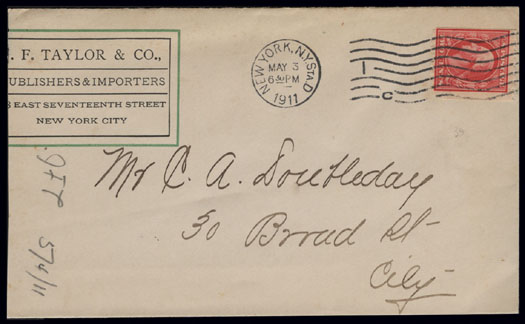 . F. TAYLOR & CO.,
PUBLISHERS & IMPORTERS
EAST SEVENTEENTH STREET
NEW YORK CITY
NEW YORK, N.Y. STA. D
MAY 3
6 PM
1911
1
C
Mr C. A. Doubleday
50 Broad St
City
5/4/11